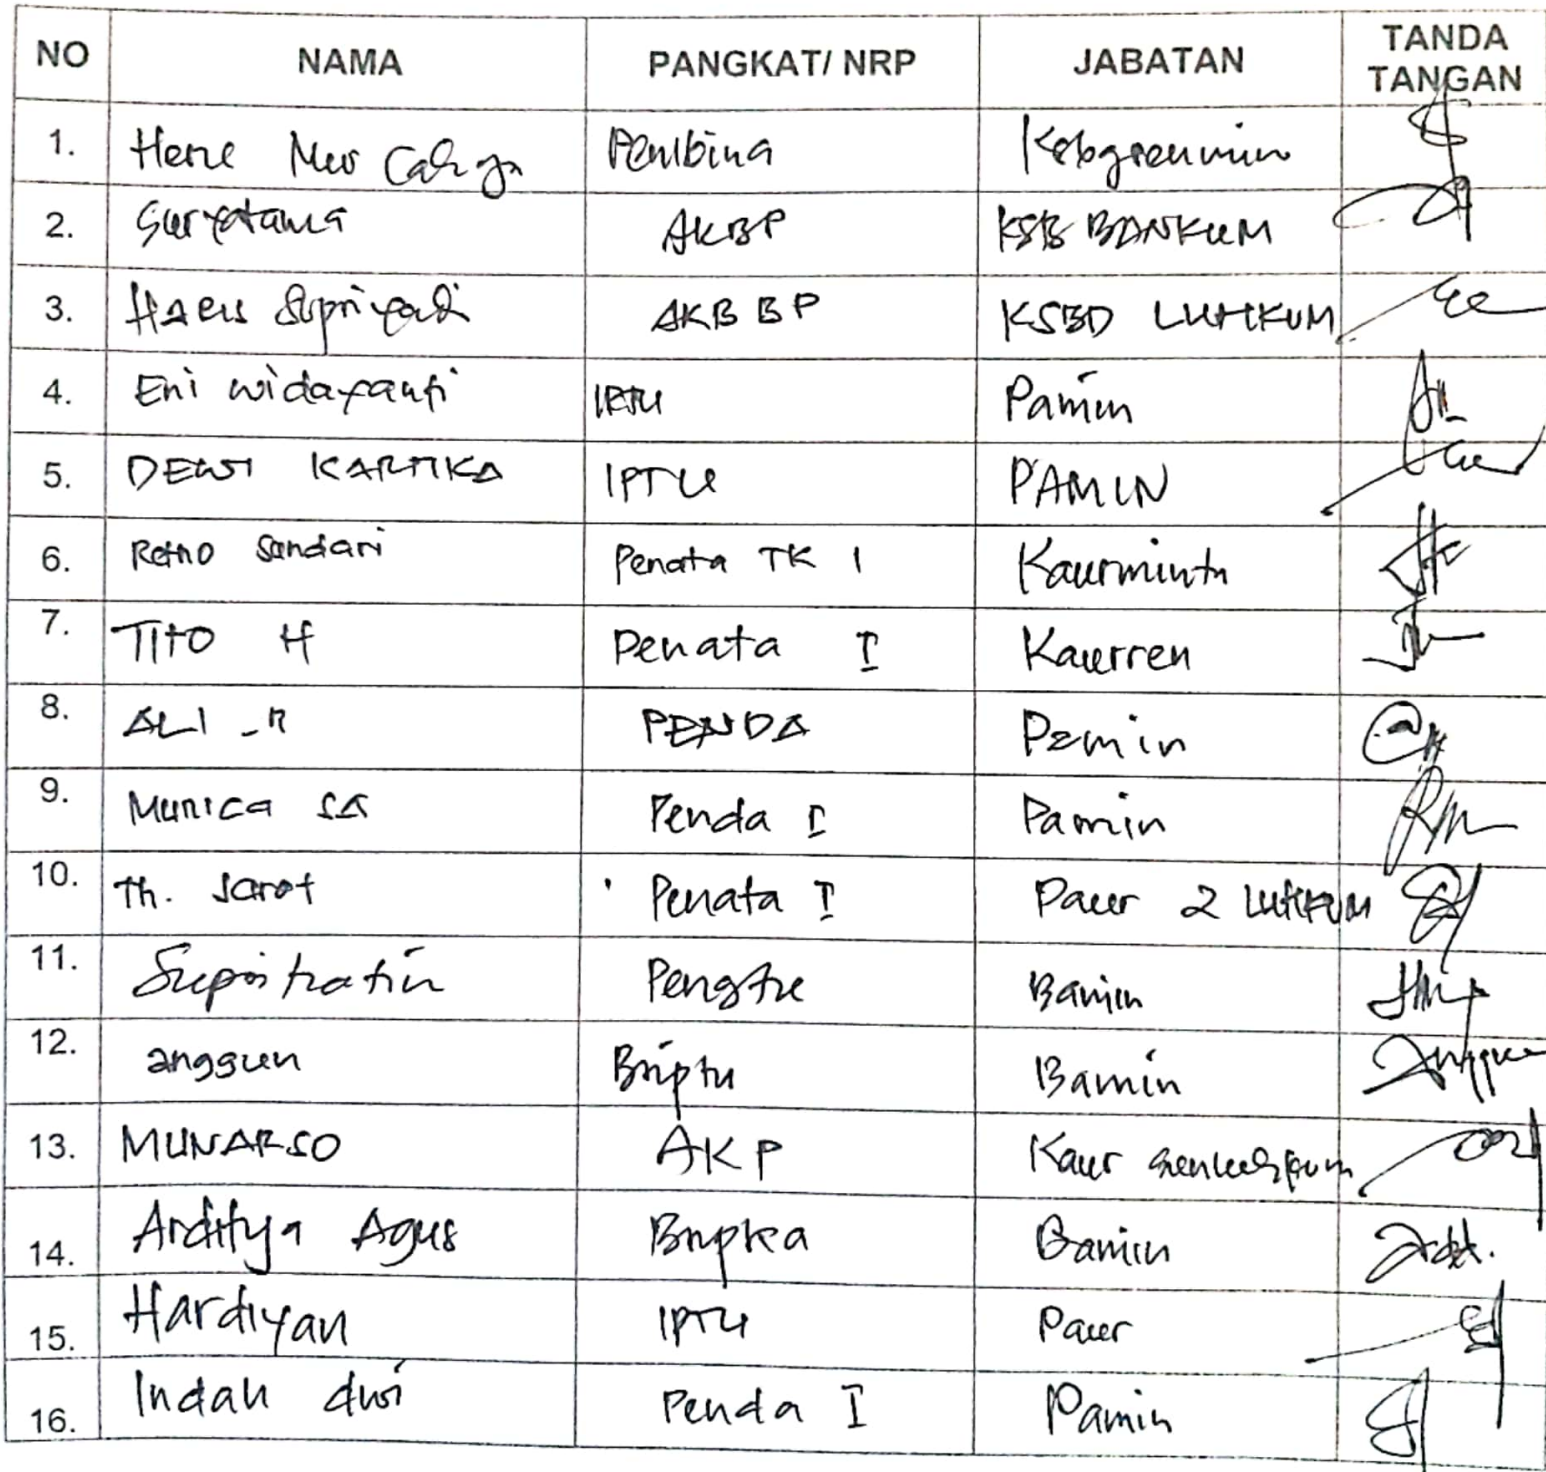 NO NAMA PANGKAT/ NRP JABATAN TANDA TANGAN
1. Herie Nur Cahya Pembina
2. Suryatama AKBP KSB BANKUM
3. HARIS Supriyadi AKB BP KSBD LUHKUM
4. Eni widayanti IPTU Pamin
5. DEWI KARTIKA IPTU PAMIN
6. Retno Sandari Penata TK I Kaurmintu
7. TITO H Penata I Kaurren
8. ALI PENDA Pamin
9. Munica SA Penda I Pamin
10. Th. Sarot Penata I Paur 2 LUHKUM
11. Pengtu Bamin
12. anggun Briptu Bamin
13. MUNARSO AKP Kaur
14. Arditya Agus Bripka Bamin
15. Hardiyan IPTU Paur
16. Indah dwi Penda I Pamin